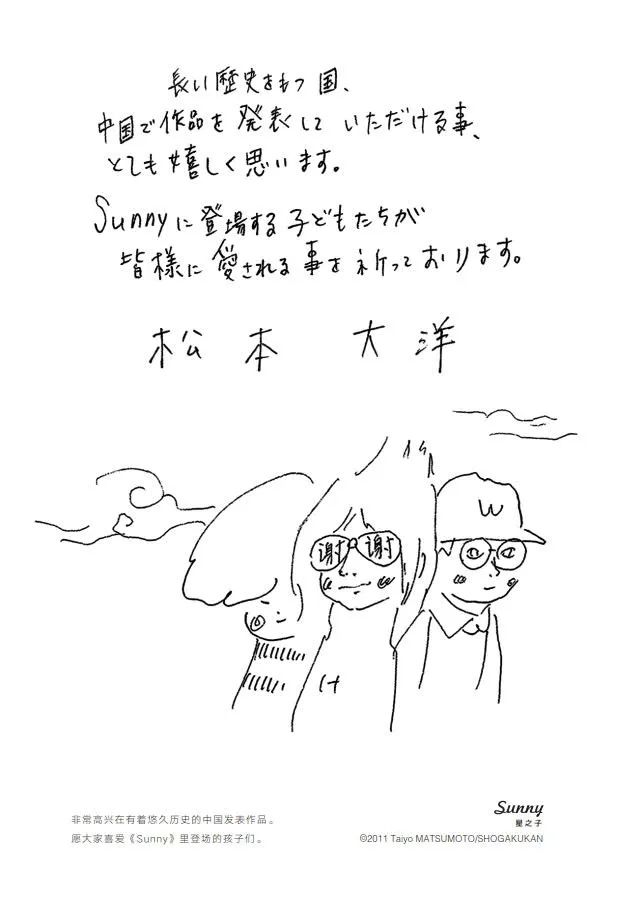 長い歴史をもつ国、
中国で作品を発表して いただける事、
とても嬉しく思います。
Sunnyに登場する子どもたちが
皆様に愛される事を祈っております。
松本 大洋
W
谢谢
け
非常高兴在有着悠久历史的中国发表作品。
愿大家喜爱《Sunny》里登场的孩子们。
Sunny
星之子
©2011 Taiyo MATSUMOTO/SHOGAKUKAN